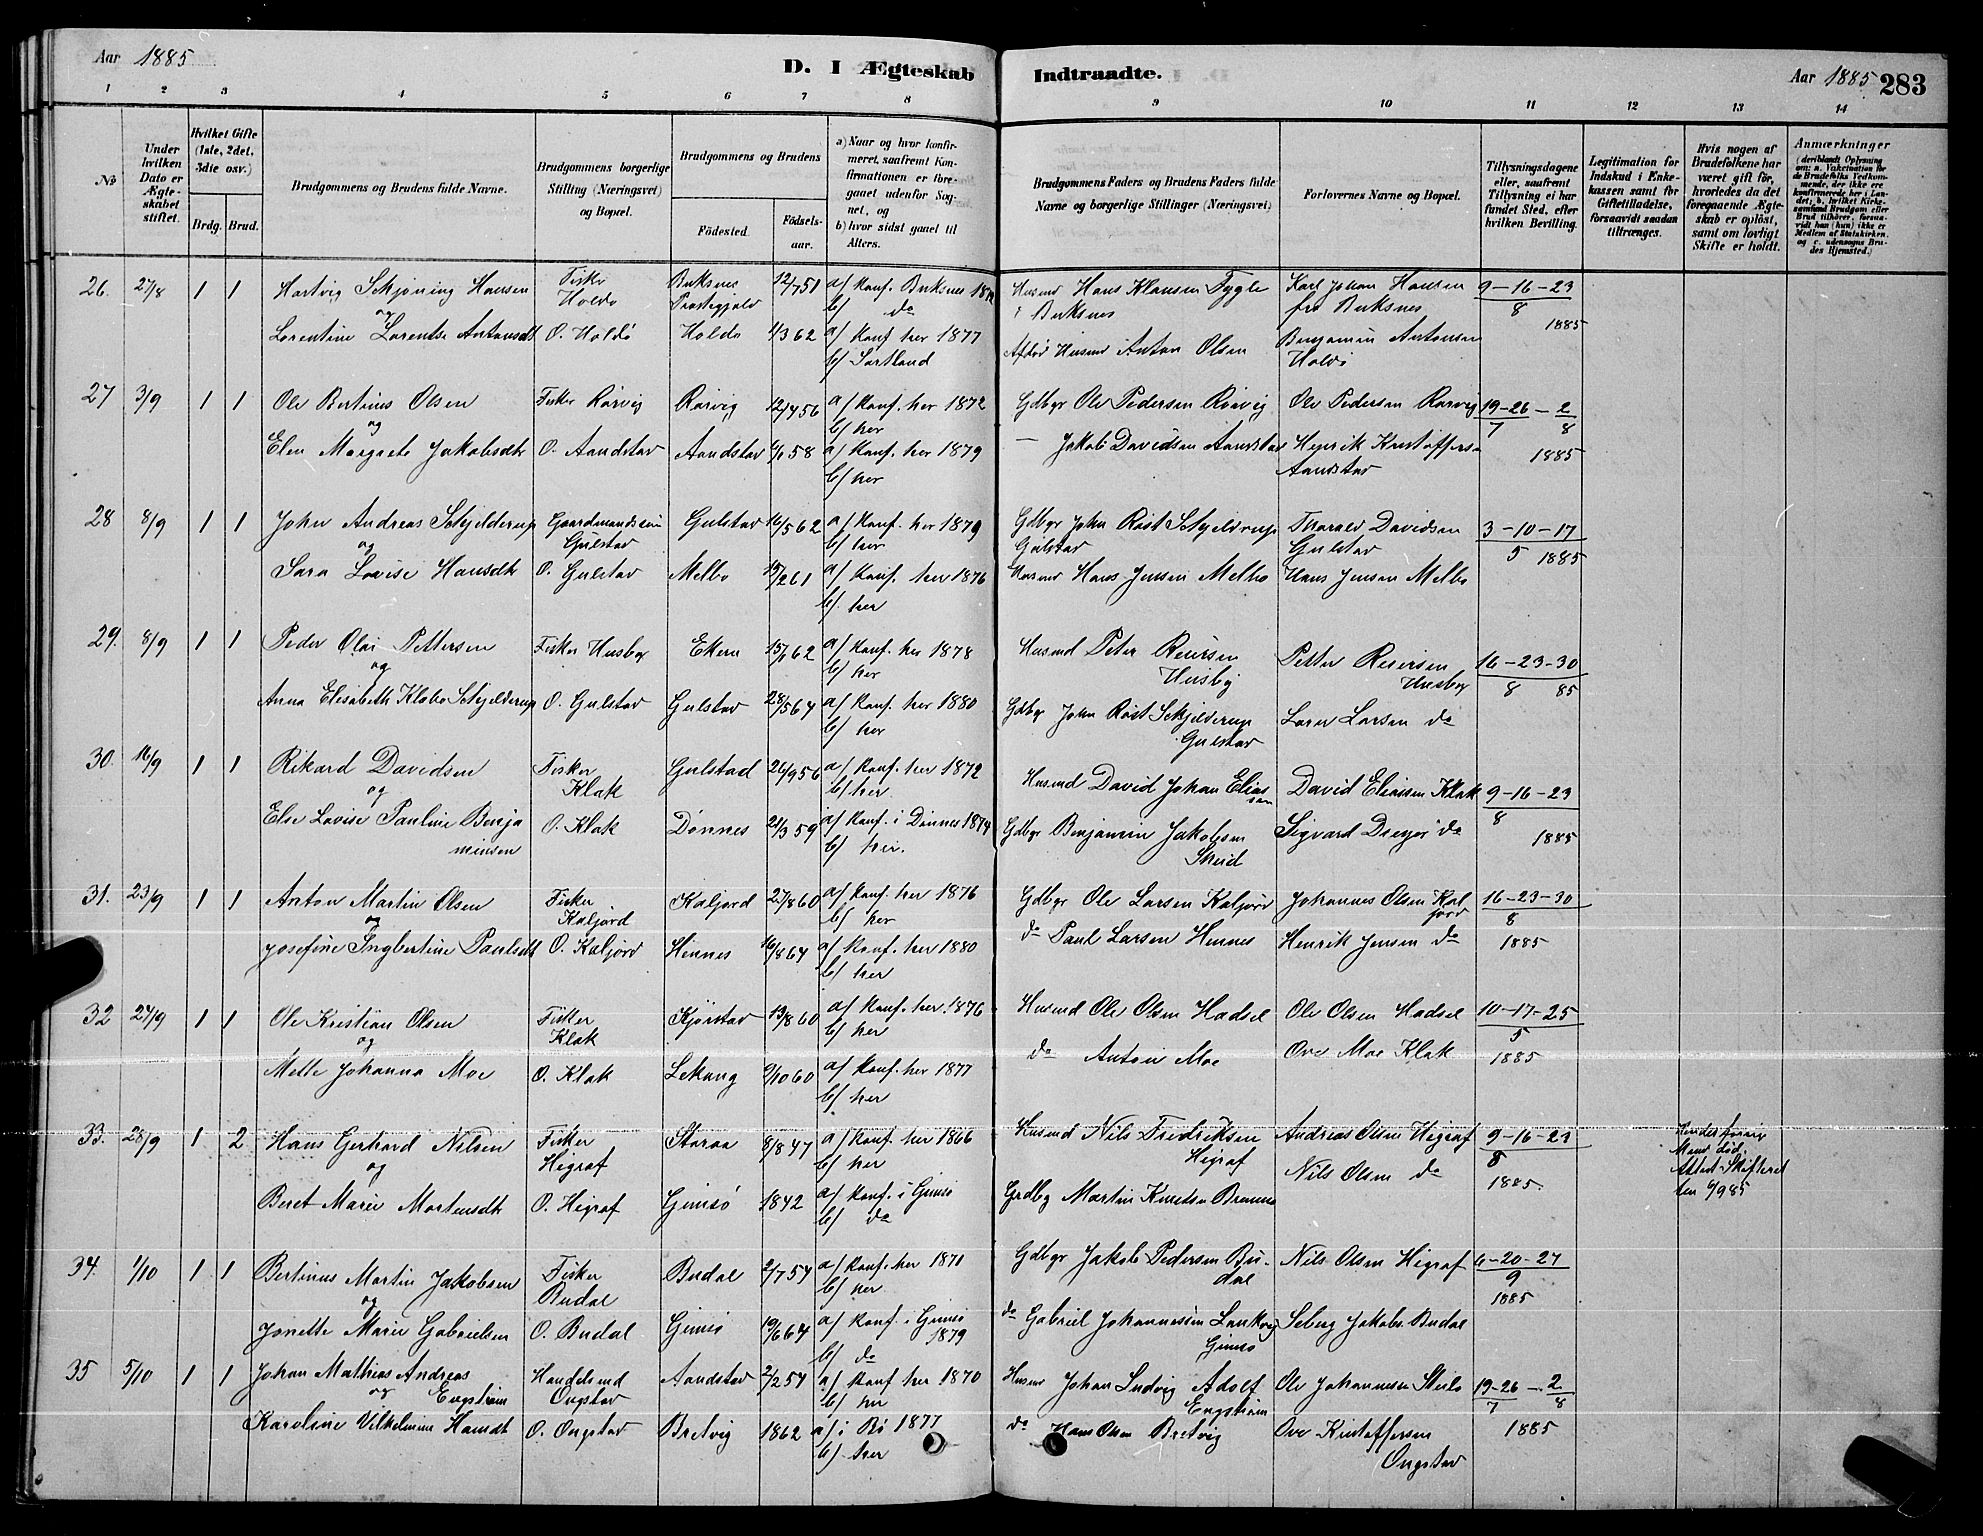 Aar 1885
D. I Ægteskab Indtraadte.
Aar 1885 283
1 2 3 4 5 6 7 8 9 10 11 12 13 14
No
Under hvilken Dato er Ægteskabet stiftet.
Hvilket Gifte (1ste, 2det, 3die osv.)
Brdg. Brud.
Brudgommens og Brudens fulde Navne.
Brudgommens borgerlige Stilling (Næringsvei) og Bopæl.
Brudgommens og Brudens
Födested. Födselsaar.
a) Naar og hvor konfirmeret, saafremt Konfirmationen er foregaaet udenfor Sognet, og
b) hvor sidst gaaet til Alters.
Brudgommens Faders og Brudens Faders fulde Navne og borgerlige Stillinger (Næringsvei)
Forlovernes Navne og Bopæl.
Tillysningsdagene eller, saafremt Tillysning ei har fundet Sted, efter hvilken Bevilling.
Legitimation for Indskud i Enkekassen samt for Giftetilladelse, forsaavidt saadan tiltrænges.
Hvis nogen af Brudefolkene har været gift för, hvorledes da det foregaaende Ægteskab er oplöst, samt om lovligt Skifte er holdt.
Anmærkninger
26. 27/8 1 1 Hartvig Skjøning Hansen Fisker Holdø Buksnes Prestegjeld 12/7 51 a/ Konf. Buksnes b/ do Husmd Hans Klausen Fygle i Buksnes Karl Johan Hansen fra Buksnes 9-16-23 / 8 1885
og
Lorentine Lorentse Antonsdt O. Holdø Holdø 1/3 62 a/ Konf her 1877 b/ Sortland Afdød Husmd Anton Olsen Benjamin Antonsen Holdø
27 3/9 1 1 Ole Bertinus Olsen Fisker Rørvig Rørvig 12/4 56 a/ Konf. her 1872 b/ her Gdbgr Ole Pedersen Rørvig Ole Pedersen Rørvig 19-26 / 7 - 2 / 8 1885
og
Elen Margrete Jakobsdtr O. Aandstad Aandstad 4/1 58 a/ Konf. her 1879 b/ her — Jakob Davidsen Aandstad Henrik Kristoffersen Aandstad
28 8/9 1 1 John Andreas Schjelderup Gaardmandssøn Gulstad Gulstad 16/5 62 a/ Konf. her 1879 b/ her Gdbgr John Røst Schjeldrup Gulstad Tharald Davidsen Gulstad 3-10-17 / 5 1885
og
Sara Lovise Hansdtr O. Gulstad Melbo 15/2 61 a/ Konf. her 1876 b/ her Husmd Hans Jensen Melbo Hans Jensen Melbo
29. 8/9 1 1 Peder Olai Pettersen Fisker Husby Ekern 15/1 62 a/ Konf. her 1878 b/ her Husmd Peter Reiersen Husby Petter Reiersen Husby 16-23-30 / 8 85
og
Anna Elisabeth Klabo Schjelderup O. Gulstad Gulstad 28/5 64 a/ Konf. her 1880 b/ her Gdbgr John Røst Schjelderup Gulstad Larsen do
30. 16/9 1 1 Rikard Davidsen Fisker Klak Gulstad 26/9 56 a/ Konf. her 1872 b/ her Husmd David Johan Eliassen David Eliassen Klak 9-16-23 / 8 1885
og
Else Lovise Pauline Benjaminsen O. Klak Dønnes 21/3 59 a/ Konf. i Dønnes 1874 b/ her. Gdbgr Benjamin Jakobsen Sigvard Dreyer do
31. 23/9 1 1 Anton Martin Olsen Fisker Kaljord Kaljord 27/8 60 a/ Konf. her 1876 b/ her Gdbgr Ole Larsen Kaljord Johannes Olsen Kaljord 16-23-30 / 8 1885
og
Josefine Ingbertine Paulsdt O. Kaljord Hennes 16/8 64 a/ Konf. her 1880 b/ her do Paul Larsen Hennes Henrik Jensen do
32 24/9 1 1 Ole Kristian Olsen Fisker Klak Kjørstad 13/8 60 a/ Konf. her 1876 b/ her Husmd Ole Olsen Hadsel Ole Olsen Hadsel 10-17-25 / 5 1885
og
Mette Johanna Moe O. Klak Lekang 9/10 60 a/ Konf. her 1877 b/ her do Anton Moe Ove Moe Klak
33. 28/9 1 2 Hans Gerhard Nilsen Fisker Higraf Storaa 8/8 47 a/ Konf. her 1866 b/ her Husmd Nils Fredriksen Higraf Andreas Olsen Higraf 9-16-23 / 8 1885. Hendes forrige Mand død. Attest Skifteret den 6/9 85
og
Beret Marie Mortensdt O. Higraf Gimsø 1842 a/ Konf. i Gimsø b/ do Grdbg Martin Knutsen Nils Olsen do
34. 1/10 1 1 Bertinus Martin Jakobsen Fisker Budal Budal 2/7 54 a/ Konf. her 1871 b/ her Gdbgr Jakob Pedersen Budal Nils Olsen Higraf 6-20-27 / 9 1885
og
Jonette Marie Gabrielsen O. Budal Gimsø 19/6 64 a/ Konf. i Gimsø 1879 b/ do do Gabriel Johannessen Gimsø Seberg Jakobs. Budal
35 5/10 1 1 Johan Mathias Andreas Engstrøm Handelsmd Ongstad Aandstad 2/2 54 a/ Konf her 1870 b/ her Husmd Johan Ludvig Adolf Engstrøm Ole Johannesen Steilo 19-26 / 7 - 2 / 8 1885
og
Karoline Vilhelmine Hansdt O. Ongstad Bretvig 1862 a/ i Bø 1877 b/ her do Hans Olsen Bretvig Ove Kristoffersen Ongstad